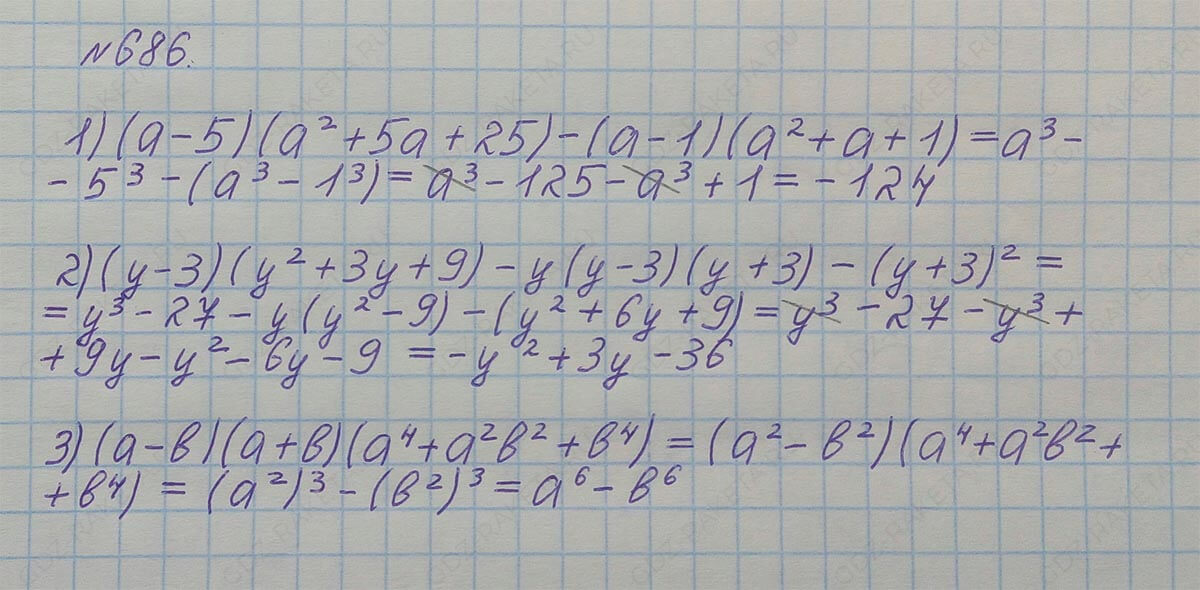 №686.
1) (a-5)(a²+5a+25)-(a-1)(a²+a+1)=a³-
-5³-(a³-1³)=a³-125-a³+1=-124
2) (y-3)(y²+3y+9)-y(y-3)(y+3)-(y+3)²=
=y³-27-y(y²-9)-(y²+6y+9)=y³-27-y³+
+9y-y²-6y-9=-y²+3y-36
3) (a-в)(a+в)(a⁴+a²в²+в⁴)=(a²-в²)(a⁴+a²в²+
+в⁴)=(a²)³-(в²)³=a⁶-в⁶
GDZ-RAKETA.RU